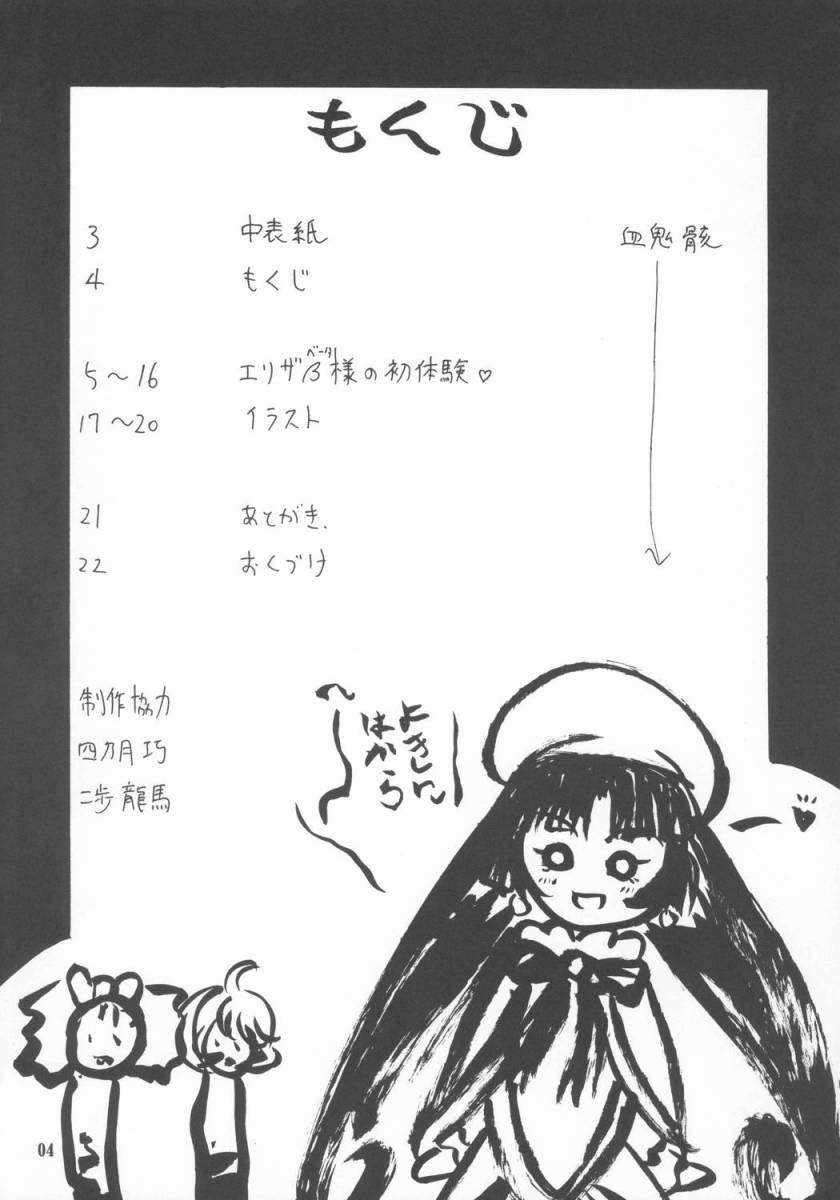 もくじ
3 中表紙 血鬼骸
4 もくじ
5～16 エリザβ様の初体験♡
ベータ
17～20 イラスト
21 あとがき.
22 おくづけ
制作協力
四カ月巧
二歩龍馬
よきに
はから
へ
04